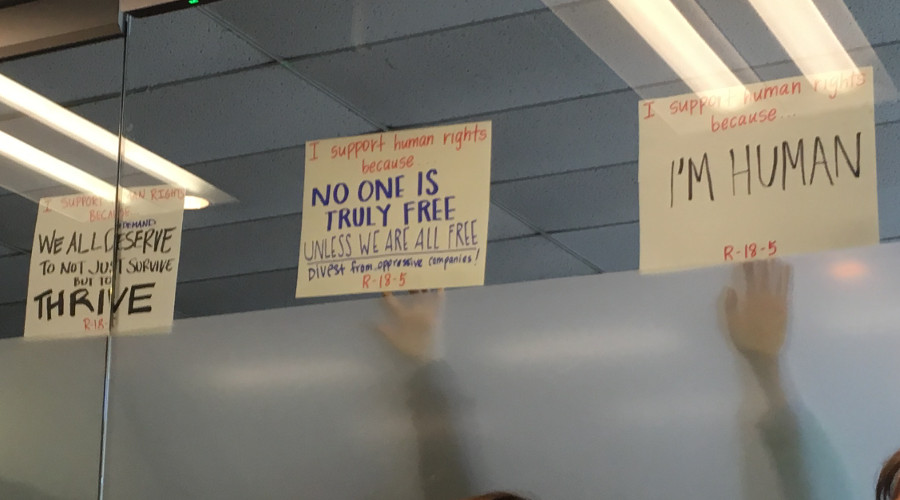 I SUPPORT HUMAN RIGHTS
BECAUSE
DEMAND
WE ALL DESERVE
TO NOT JUST SURVIVE
BUT TO
THRIVE
R-18-
I support human rights
because...
NO ONE IS
TRULY FREE
UNLESS WE ARE ALL FREE
Divest from oppressive companies!
R-18-5
I support human rights
because...
I'M HUMAN
R-18-5